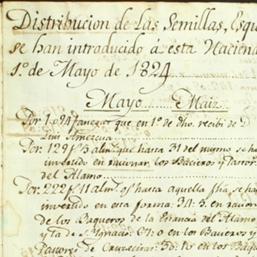 Distribucion de las Semillas, Esqu
se han introducido á esta Haciend
1.º de Mayo de 1824
Mayo Maiz
Por 1,024 fanegas que en 1.º de dho. recibi de D
Luis Amezcua
Por 129 f.s 5 alm.s que hasta 31 del mismo se ha
invertido en racionar los Baceros y Pastor.
del Alamo
Por 222 f.s 11 alm.s hasta aquella fha se hay
invertido en esta forma 34.5 en racion
de los Baqueros de la Estancia del Alamo
y la de S.n Ignacio 67.0 en los Baqueros y
Pastores de Cruzacinas en los Baqu